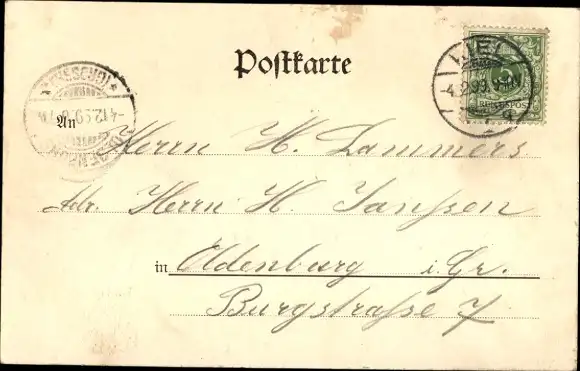 Postkarte
KIEL
4.12.99.
REICHSPOST
4.12.99.
An
Herrn H. Lammers
Adr. Herrn H. Janßen
in Oldenburg i. Gr.
Burgstraße 7